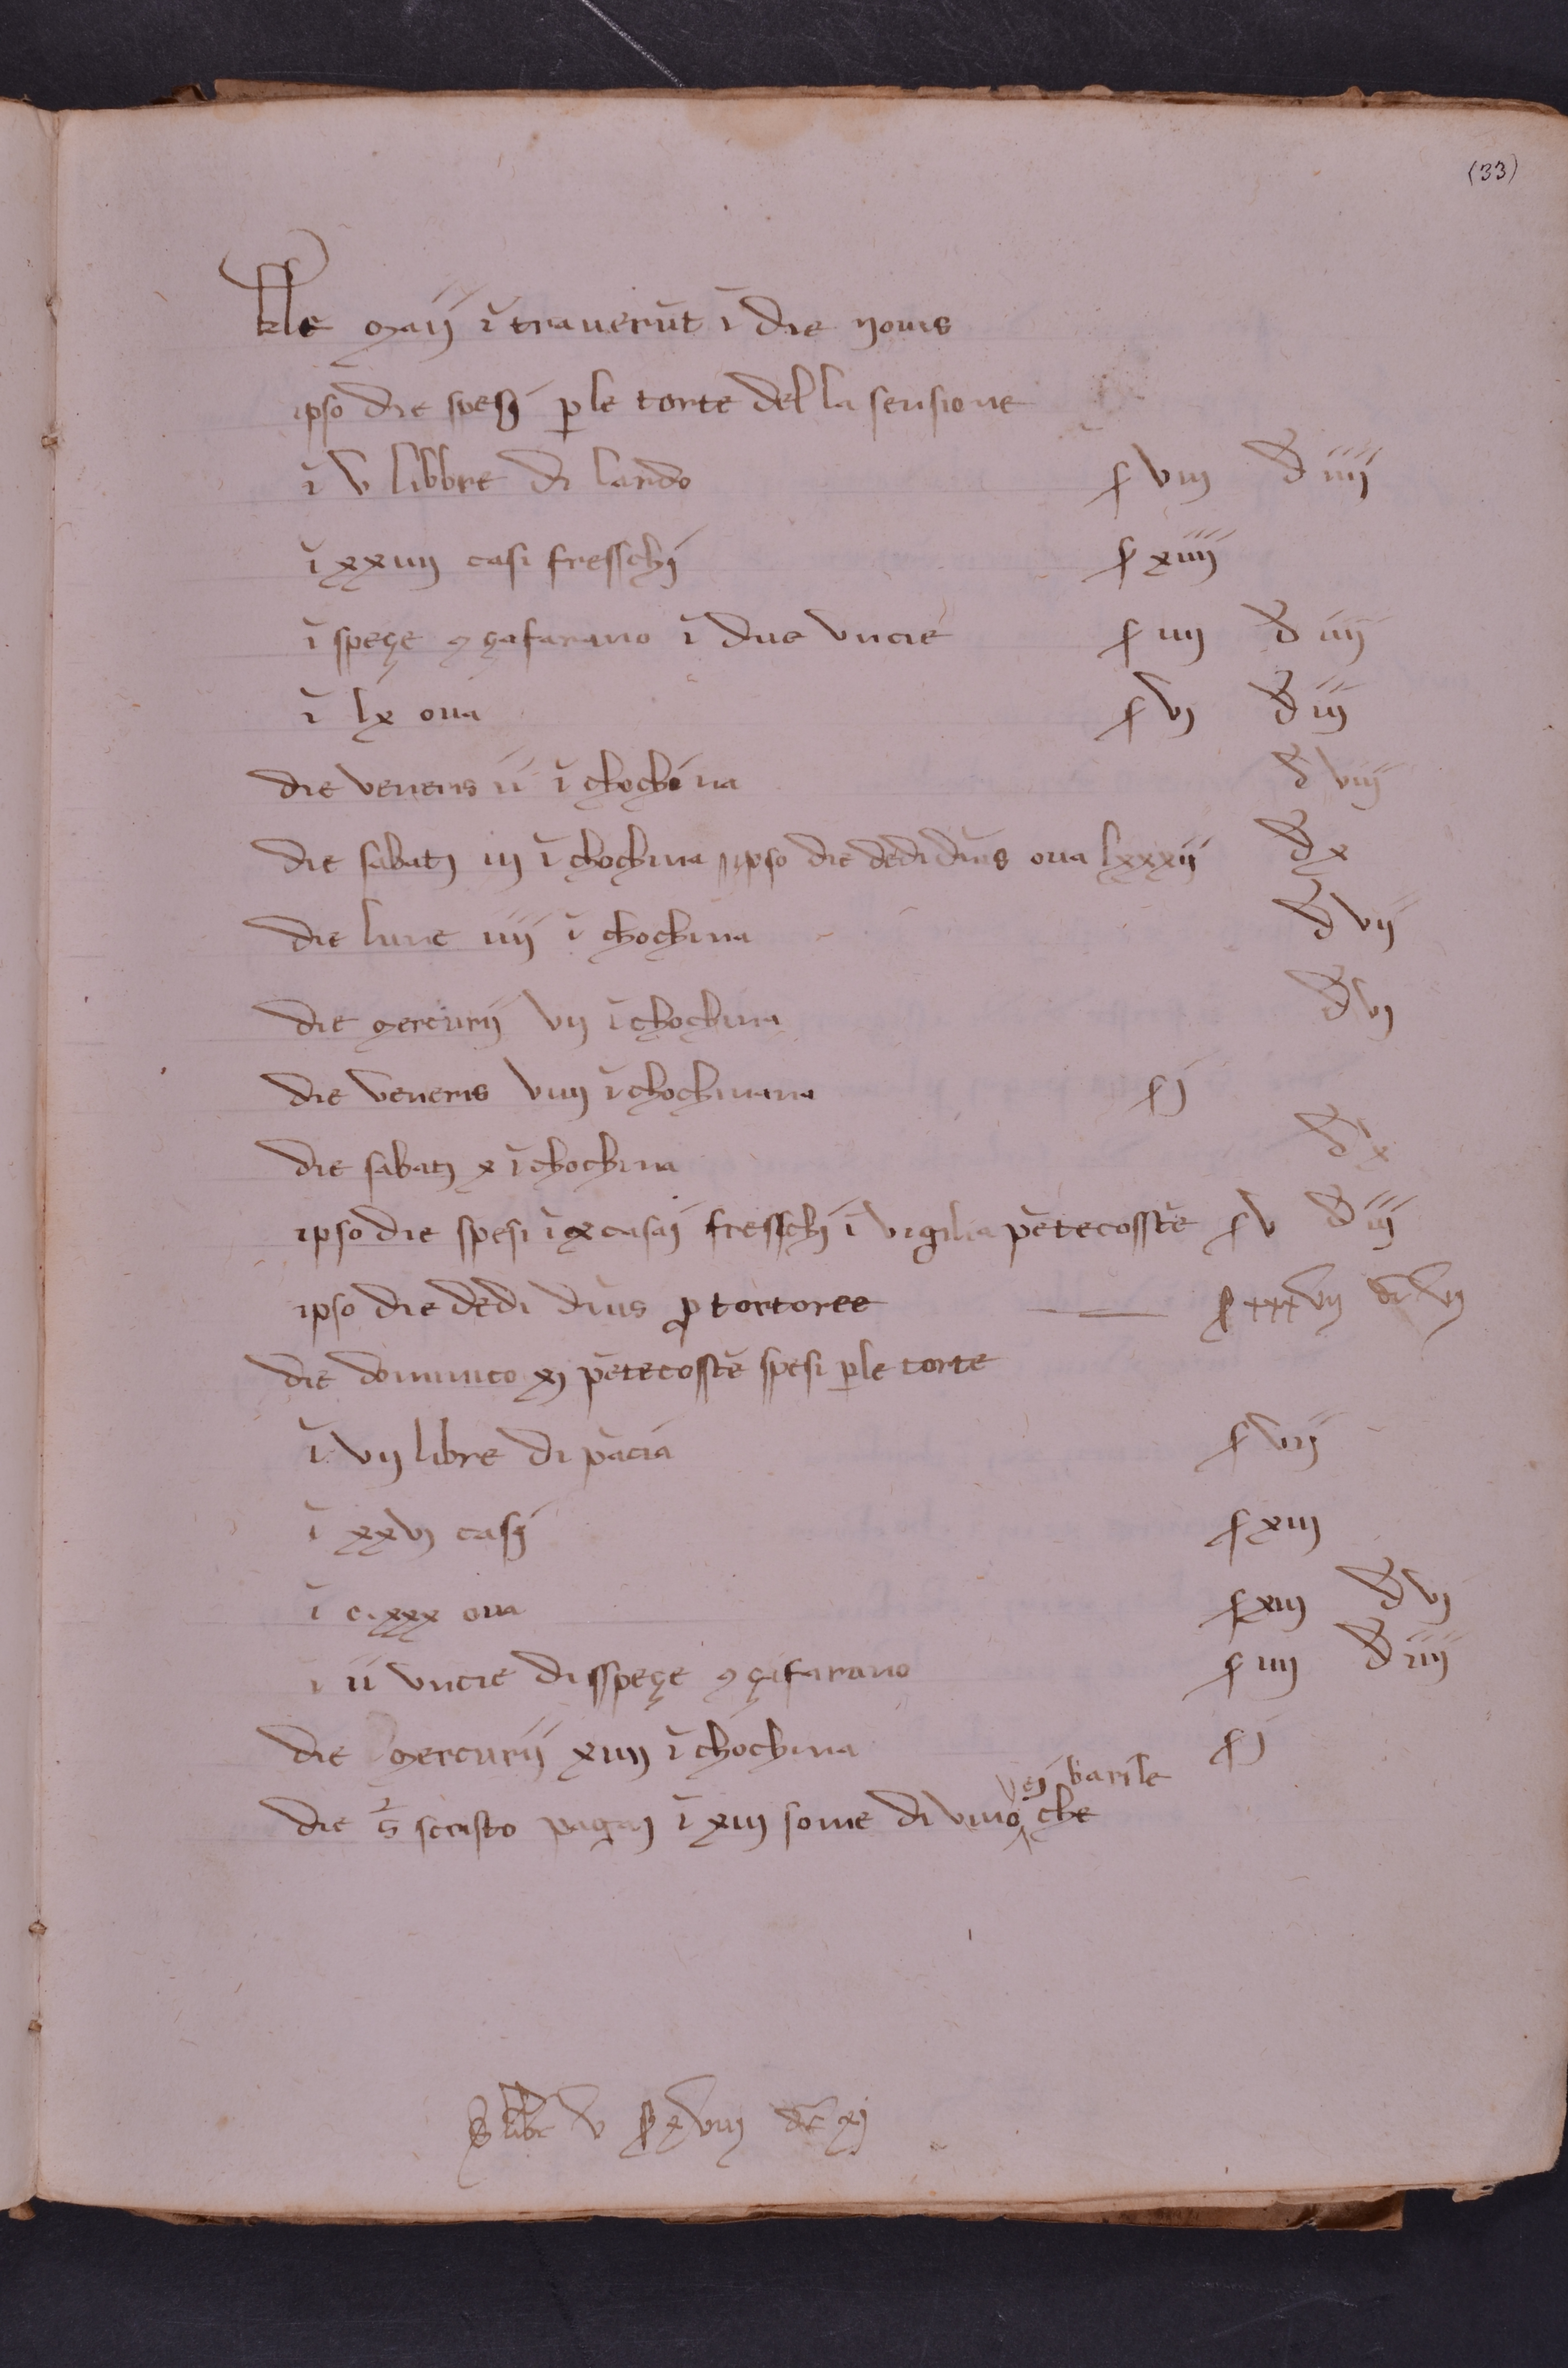 (33)
kle maij ĩtraverũt ĩ die Jovis
ipso die spesi p le torte della sensione
ĩ v libbre di lardo s viij d iiij
ĩ xxiiij casi fresschi s xiiij
ĩ speçe 9 çafarano ĩ due uncie s iiij d iiij
ĩ lx ova s vj d iij
die veneris ii ĩ chochina d viij
die sabati iij ĩ chochina ipso die dedi dñs ova lxxxij d x
die lune iiij ĩ chochina d vij
die mercurij vij ĩ chochina d vj
die veneris viiij ĩ chochinana s j
die sabati x ĩ chochina d x
ipso die spesi ĩ x casai fresschi ĩ vigilia pẽtecosstẽ s v d iij
ipso die dedi dñs p tortoree s xxxvij d vij
die dominico xj pẽtecosstẽ spesi p le torte
ĩ vij libre di pãcia s viij
ĩ xxvj casi s xiij
ĩ c.xxx ova s xiij d vj
ĩ ii uncie di sspeçe 9 çafarano s iiij d iiij
die mercurij xiiij ĩ chochina s j
ej barile
die scristo pagai ĩ xiij some di vino che
S libr v s xviiij d xj